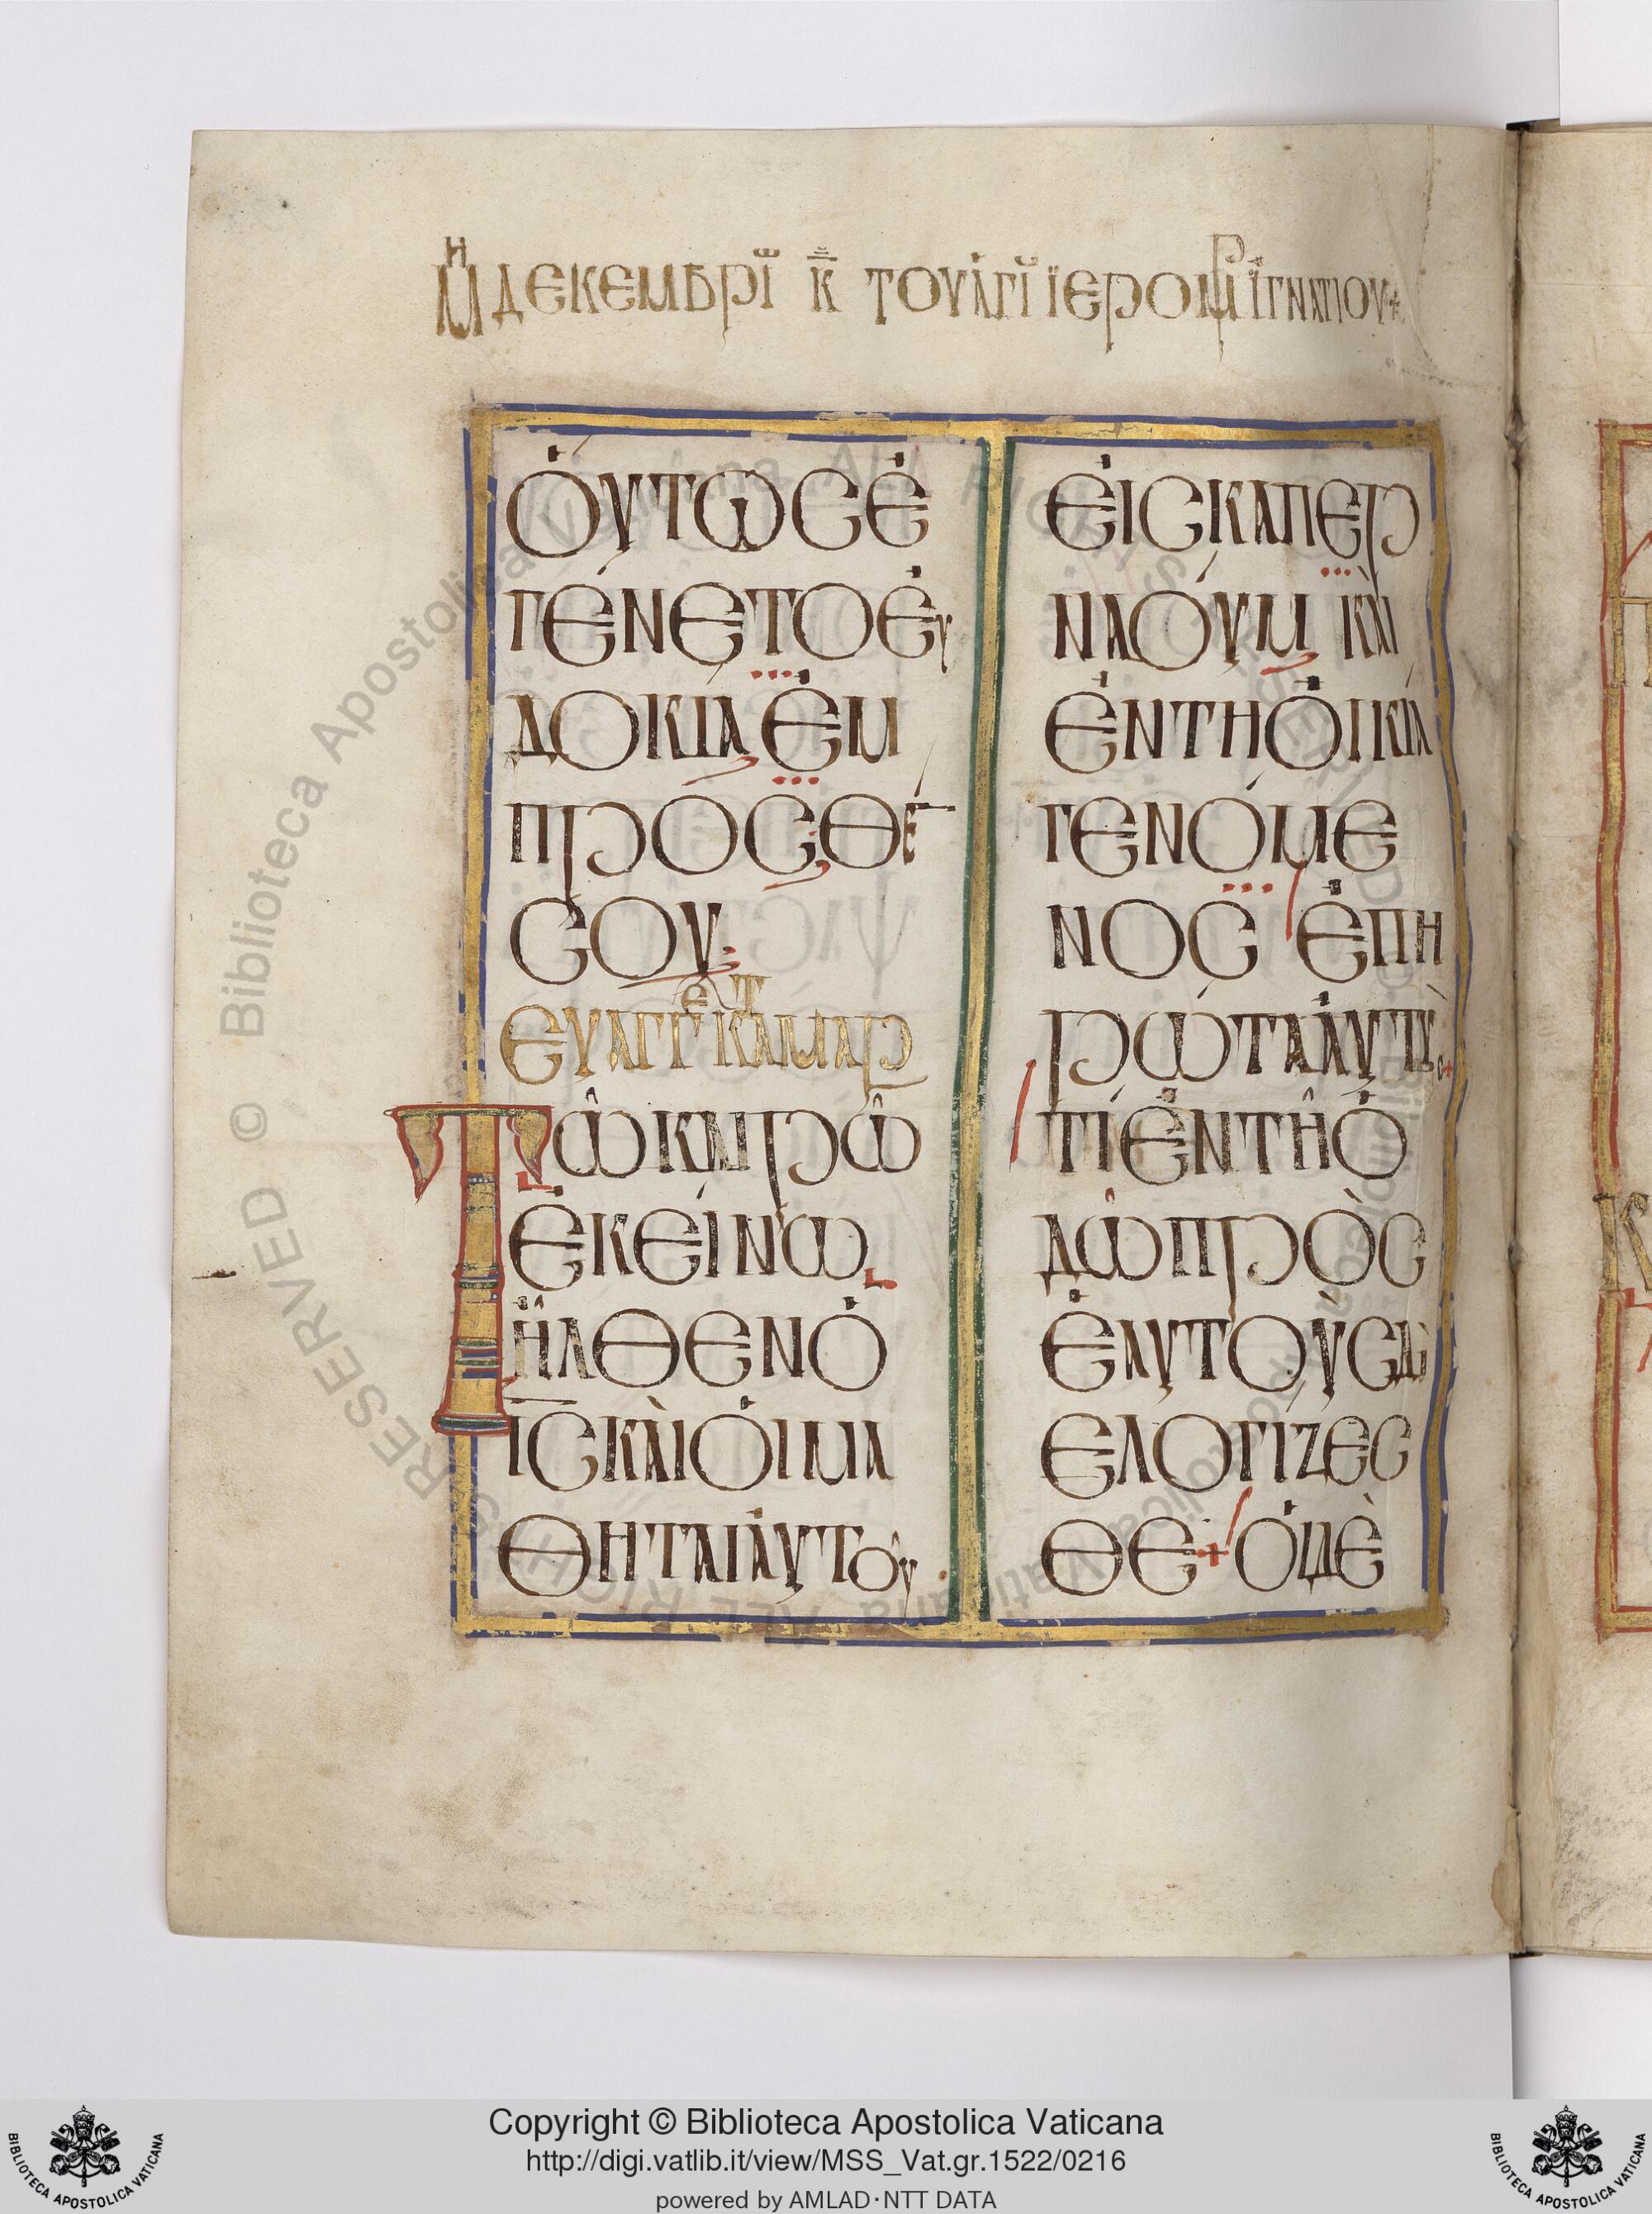 ΜΗ ΔΕΚΕΜΒΡΙῳ Κ ΤΟΥ ἉΓΙΟΥ ΪΕΡΟΜΡ ἸΓΝΑΤΙΟΥ
ὉΥΤΩΣ Ἐ
ΓΕΝΕΤΟ ἘΥ
ΔΟΚΙΑ ἘΜ
ΠΡΟΣΘΕ
ΣΟΥ·
ΕΥΑΓΓΕ ΚΑΤΑ ΜΑΡ
ΤΩ ΚΑΙΡΩ
ἘΚΕΙΝΩ
ἯΛΘΕΝ Ὁ
ΙΣ ΚΑΙ ὉΙ ΜΑ
ΘΗΤΑΙ ΑΥΤΟΥ
ἘΙΣ ΚΑΠΕΡ
ΝΑΟΥΜ ΚΑΙ
ἘΝ ΤΗ ὈΙΚΙΑ
ΓΕΝΟΜΕ
ΝΟΣ ἘΠΗ
ΡΩΤΑ ΑΥΤΥΣ
ΤΙ ἘΝ ΤΗ Ὁ
ΔΩ ΠΡΟΣ
ἙΑΥΤΟΥΣ ΔΙ
ΕΛΟΓΙΖΕΣ
ΘΕ + ὉΙ ΔΕ
Copyright © Biblioteca Apostolica Vaticana
http://digi.vatlib.it/view/MSS_Vat.gr.1522/0216
powered by AMLAD·NTT DATA
BIBLIOTECA APOSTOLICA VATICANA
BIBLIOTECA APOSTOLICA VATICANA
© Biblioteca Apostolica Vaticana ALL RIGHTS RESERVED